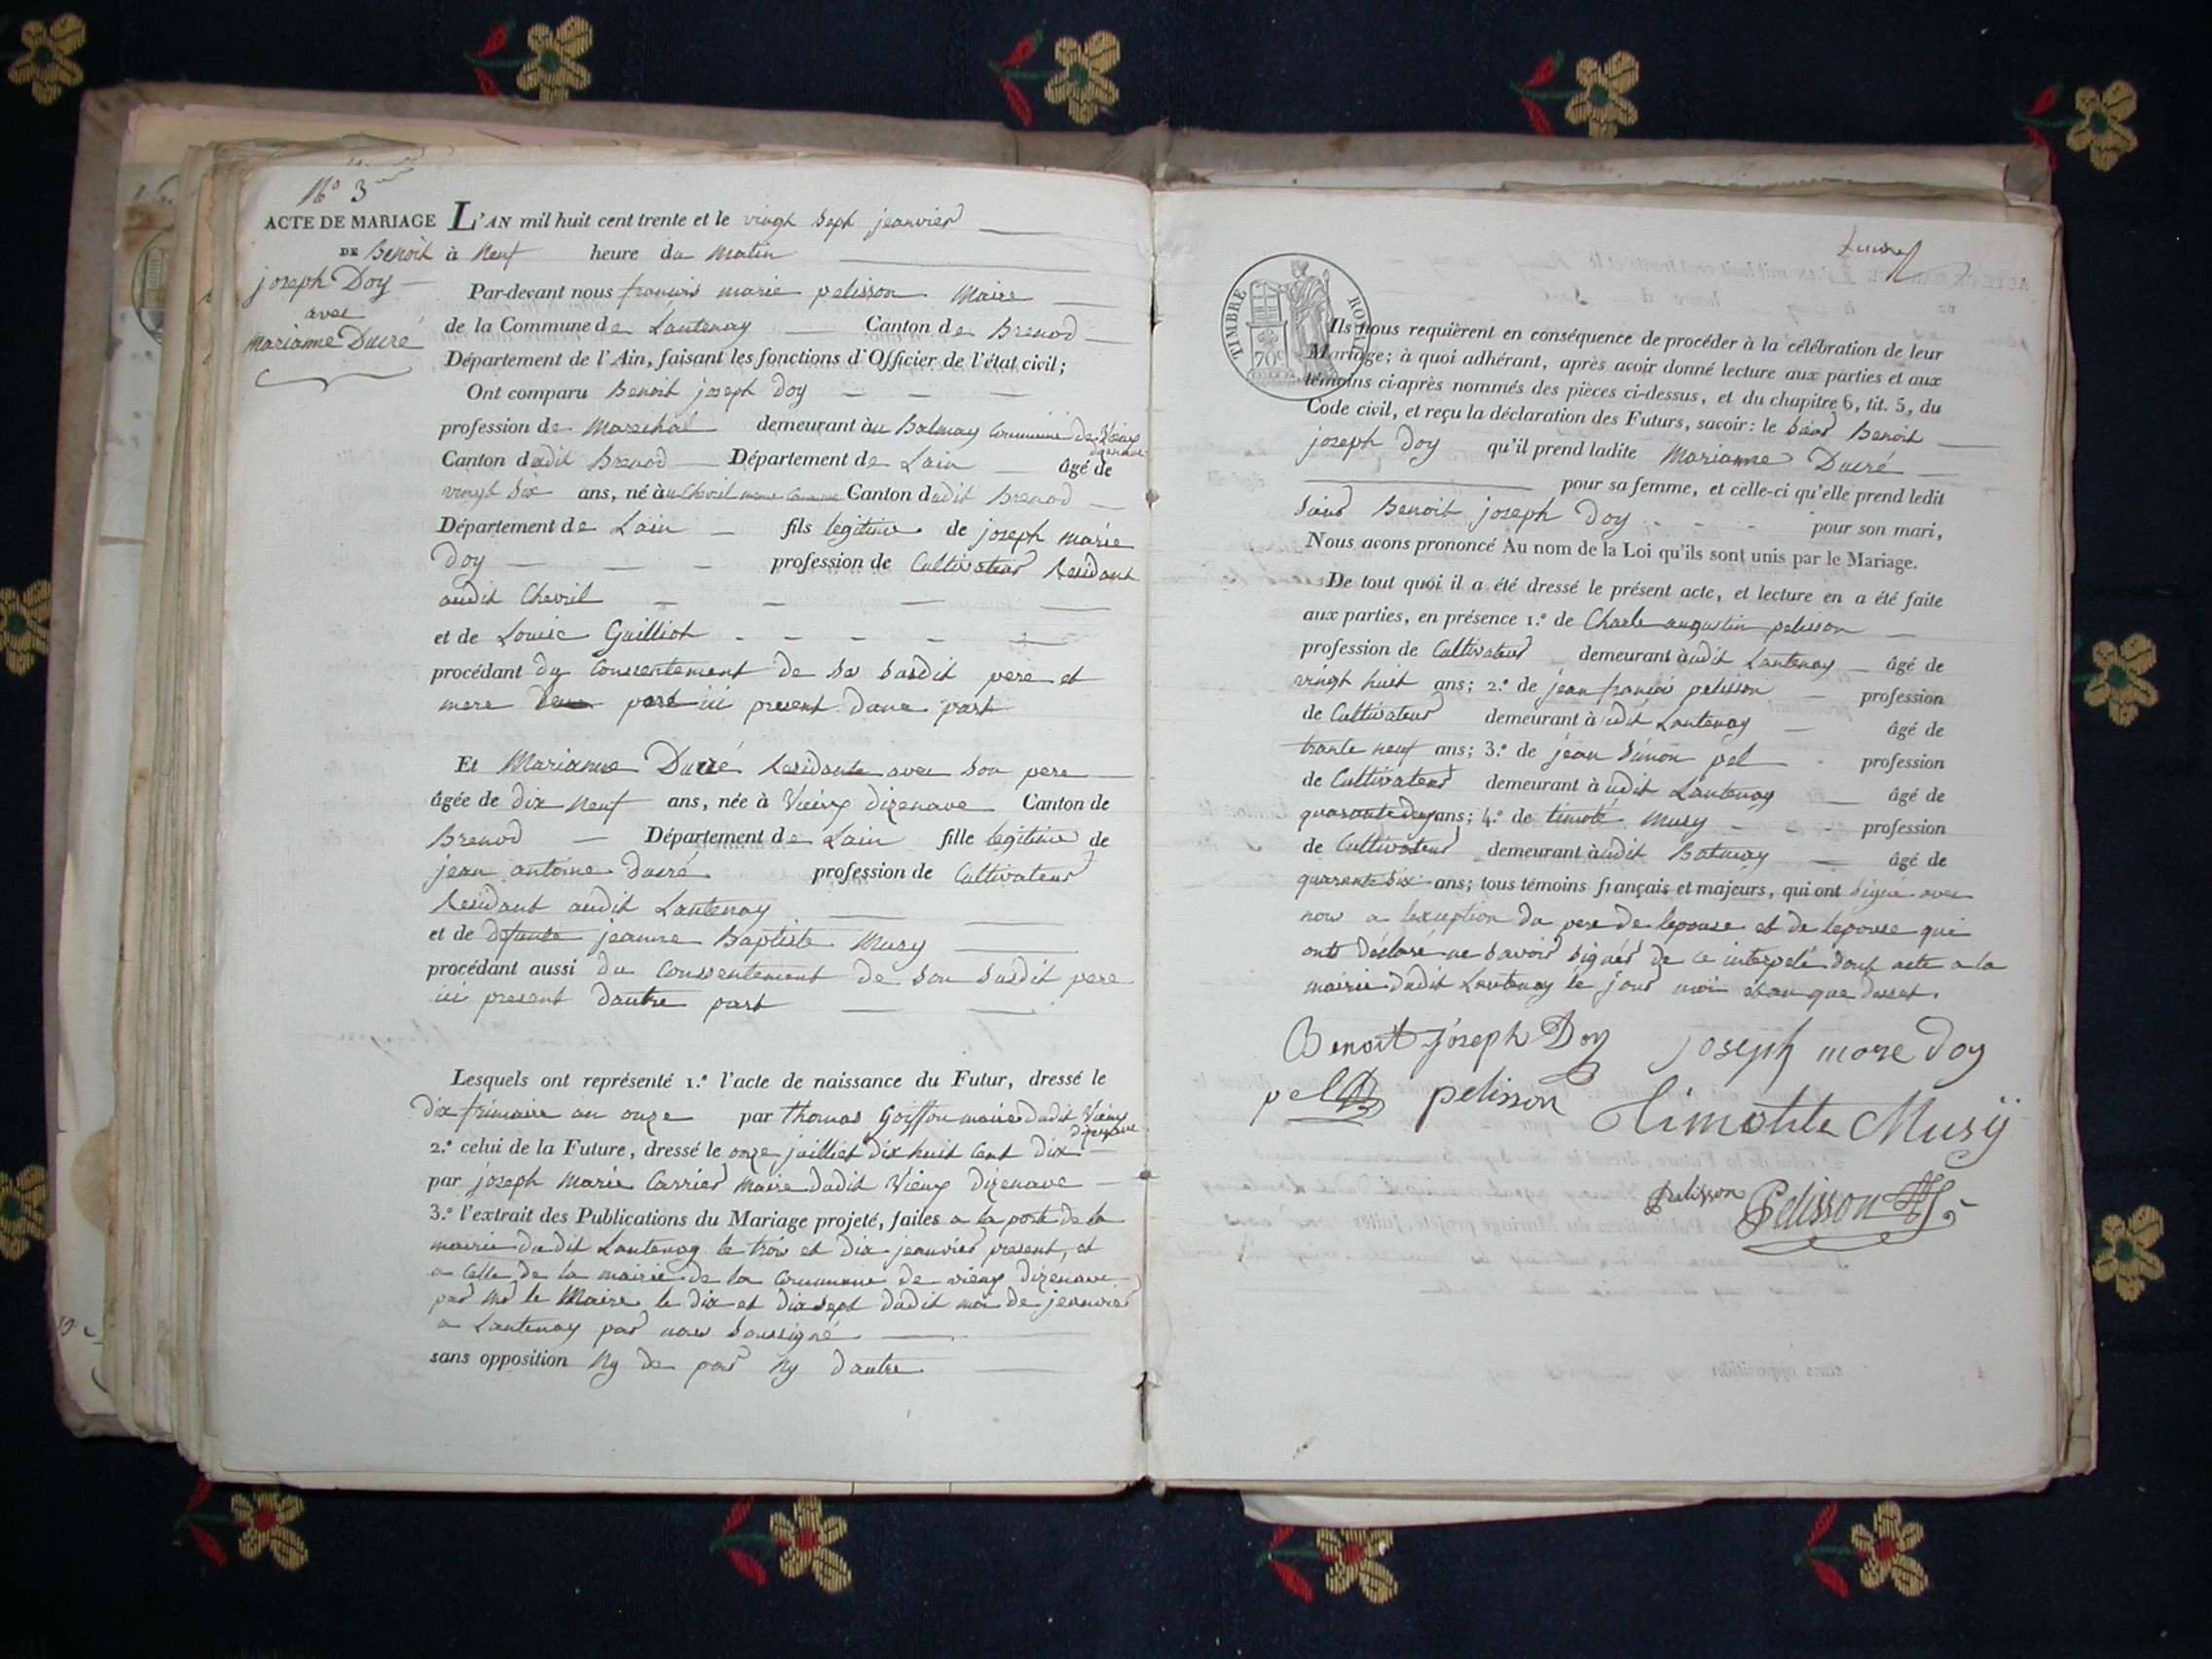 N° 3
ACTE DE MARIAGE
DE Benoit
joseph Doy
avec
Marianne Ducré
L'AN mil huit cent trente et le vingt Sept jeanvier
à Neuf heure du Matin
Par-devant nous francois marie pelisson Maire
de la Commune de Lantenay Canton de Brenod
Département de l'Ain, faisant les fonctions d'Officier de l'état civil;
Ont comparu Benoit joseph Doy
profession de Marechal demeurant àu Balmay Commune de Vieux
dizenave
Canton dudit Brenod Département de Lain âgé de
vingt Six ans, né àu Chevril meme Commune Canton dudit Brenod
Département de Lain fils legitime de joseph marie
Doy profession de Cultivateur Residant
audit Chevril
et de Louise Guilliot
procédant du Consentement de Se Susdit pere et
mere ici present dune part
Et Marianne Ducré Residante avec Son pere
âgée de dix Neuf ans, née à Vieux dizenave Canton de
Brenod Département de Lain fille legitime de
jean antoine ducré profession de Cultivateur
Residant audit Lantenay
et de defunte jeanne Baptiste Musy
procédant aussi du Consentement de Son Susdit pere
ici present dautre part
Lesquels ont représenté 1.° l'acte de naissance du Futur, dressé le
dix frimaire an onze par thomas Goiffon maire dudit Vieux
dizenave
2.° celui de la Future, dressé le onze juilliet dix huit Cent dix
par joseph Marie Carrier Maire dudit Vieux dizenave
3.° l'extrait des Publications du Mariage projeté, faites a la porte de la
mairie dudit Lantenay le trois et dix jeanvier present, et
a Celle de la mairie de la Commune de vieux dizenave
par Mr le Maire le dix et dix Sept dudit moi de jeanvier
a Lantenay par nous Soussigné
sans opposition Ny de par Ny dautre
TIMBRE ROYAL
70c
Ils nous requièrent en conséquence de procéder à la célébration de leur
Mariage; à quoi adhérant, après avoir donné lecture aux parties et aux
témoins ci-après nommés des pièces ci-dessus, et du chapitre 6, tit. 5, du
Code civil, et reçu la déclaration des Futurs, savoir: le Sieur Benoit
joseph Doy qu'il prend ladite Marianne Ducré
pour sa femme, et celle-ci qu'elle prend ledit
Sieur Benoit joseph Doy pour son mari,
Nous avons prononcé Au nom de la Loi qu'ils sont unis par le Mariage.
De tout quoi il a été dressé le présent acte, et lecture en a été faite
aux parties, en présence 1.° de Charle augustin pelisson
profession de Cultivateur demeurant àudit Lantenay âgé de
vingt huit ans; 2.° de jean francois pelisson profession
de Cultivateur demeurant à udit Lantenay âgé de
trante neuf ans; 3.° de jean Simon pel profession
de Cultivateur demeurant à udit Lantenay âgé de
quarante deux ans; 4.° de timoté Musy profession
de Cultivateur demeurant àudit Balmay âgé de
quarante Six ans; tous témoins français et majeurs, qui ont Signé avec
nous a lexception du pere de lepouse et de lepouse qui
onts déclaré ne Savoir Signér de ce interpelé dont acte a la
mairie dudit Lantenay le jour moi et an que dessus.
Benoit joseph Doy joseph mare doy
pel pelisson timothte Musÿ
pelisson Pelisson